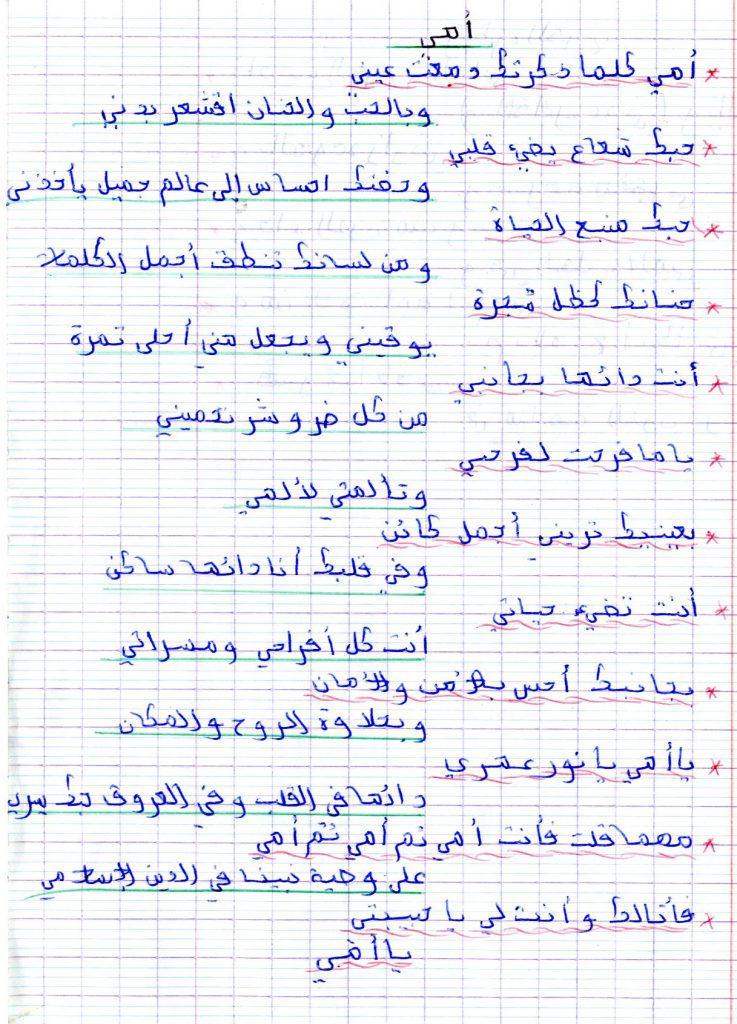 أمي
* أمي كلما ذكرتك دمعت عيني
وبالحب والحنان اقشعر بدني
* حبك شعاع يضيء قلبي
وحضنك احساس إلى عالم جميل يأخذني
* حبك منبع الحياة
ومن لسانك تنطق أجمل الكلمات
* حنانك كظل شجرة
يوقيني ويجعل مني أحلى تمرة
* أنت دائما بجانبي
من كل ضر وشر تحميني
* ياما فرحت لفرحي
وتألمتي لألمي
* بعينيك تريني أجمل كائن
وفي قلبك أنا دائما ساكن
* أنت تضيء حياتي
أنت كل أفراحي ومسراتي
* بجانبك أحس بالأمن والأمان
وبحلاوة الروح والمكان
* يا أمي يا نور عمري
دائما في القلب وفي العروق حبك يسري
* مهما قلت فأنت أمي ثم أمي ثم أمي
على وصية نبينا في الدين الإسلامي
* فأنا لك وأنت لي يا حبيبتي
يا أمي